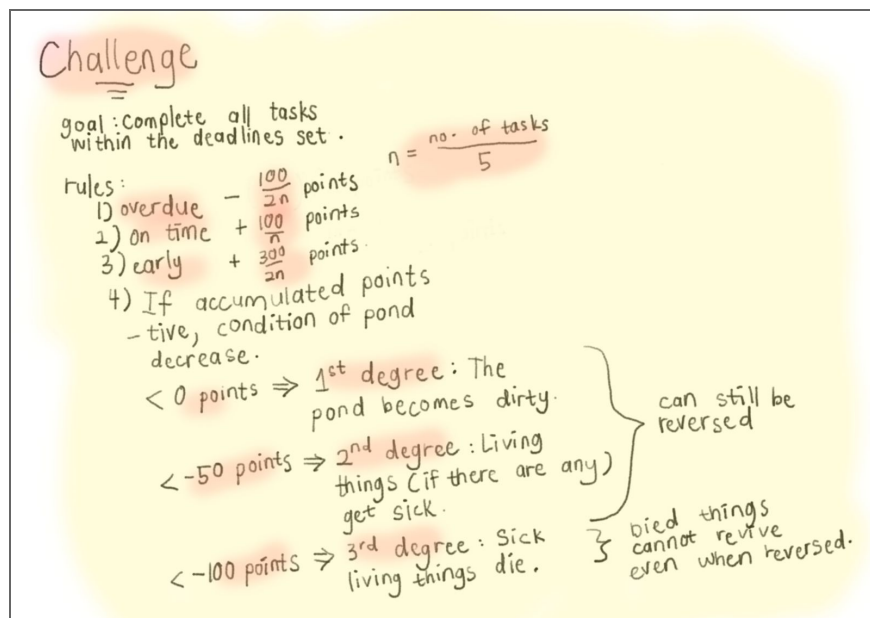 Challenge
goal : Complete all tasks
within the deadlines set .
n = no. of tasks / 5
rules :
1) overdue - 100/2n points
2) on time + 100/n points
3) early + 300/2n points.
4) If accumulated points
- tive, condition of pond
decrease.
< 0 points ⇒ 1st degree : The
pond becomes dirty.
< -50 points ⇒ 2nd degree : Living
things (if there are any)
get sick.
can still be
reversed
< -100 points ⇒ 3rd degree : Sick
living things die .
Died things
cannot revive
even when reversed.